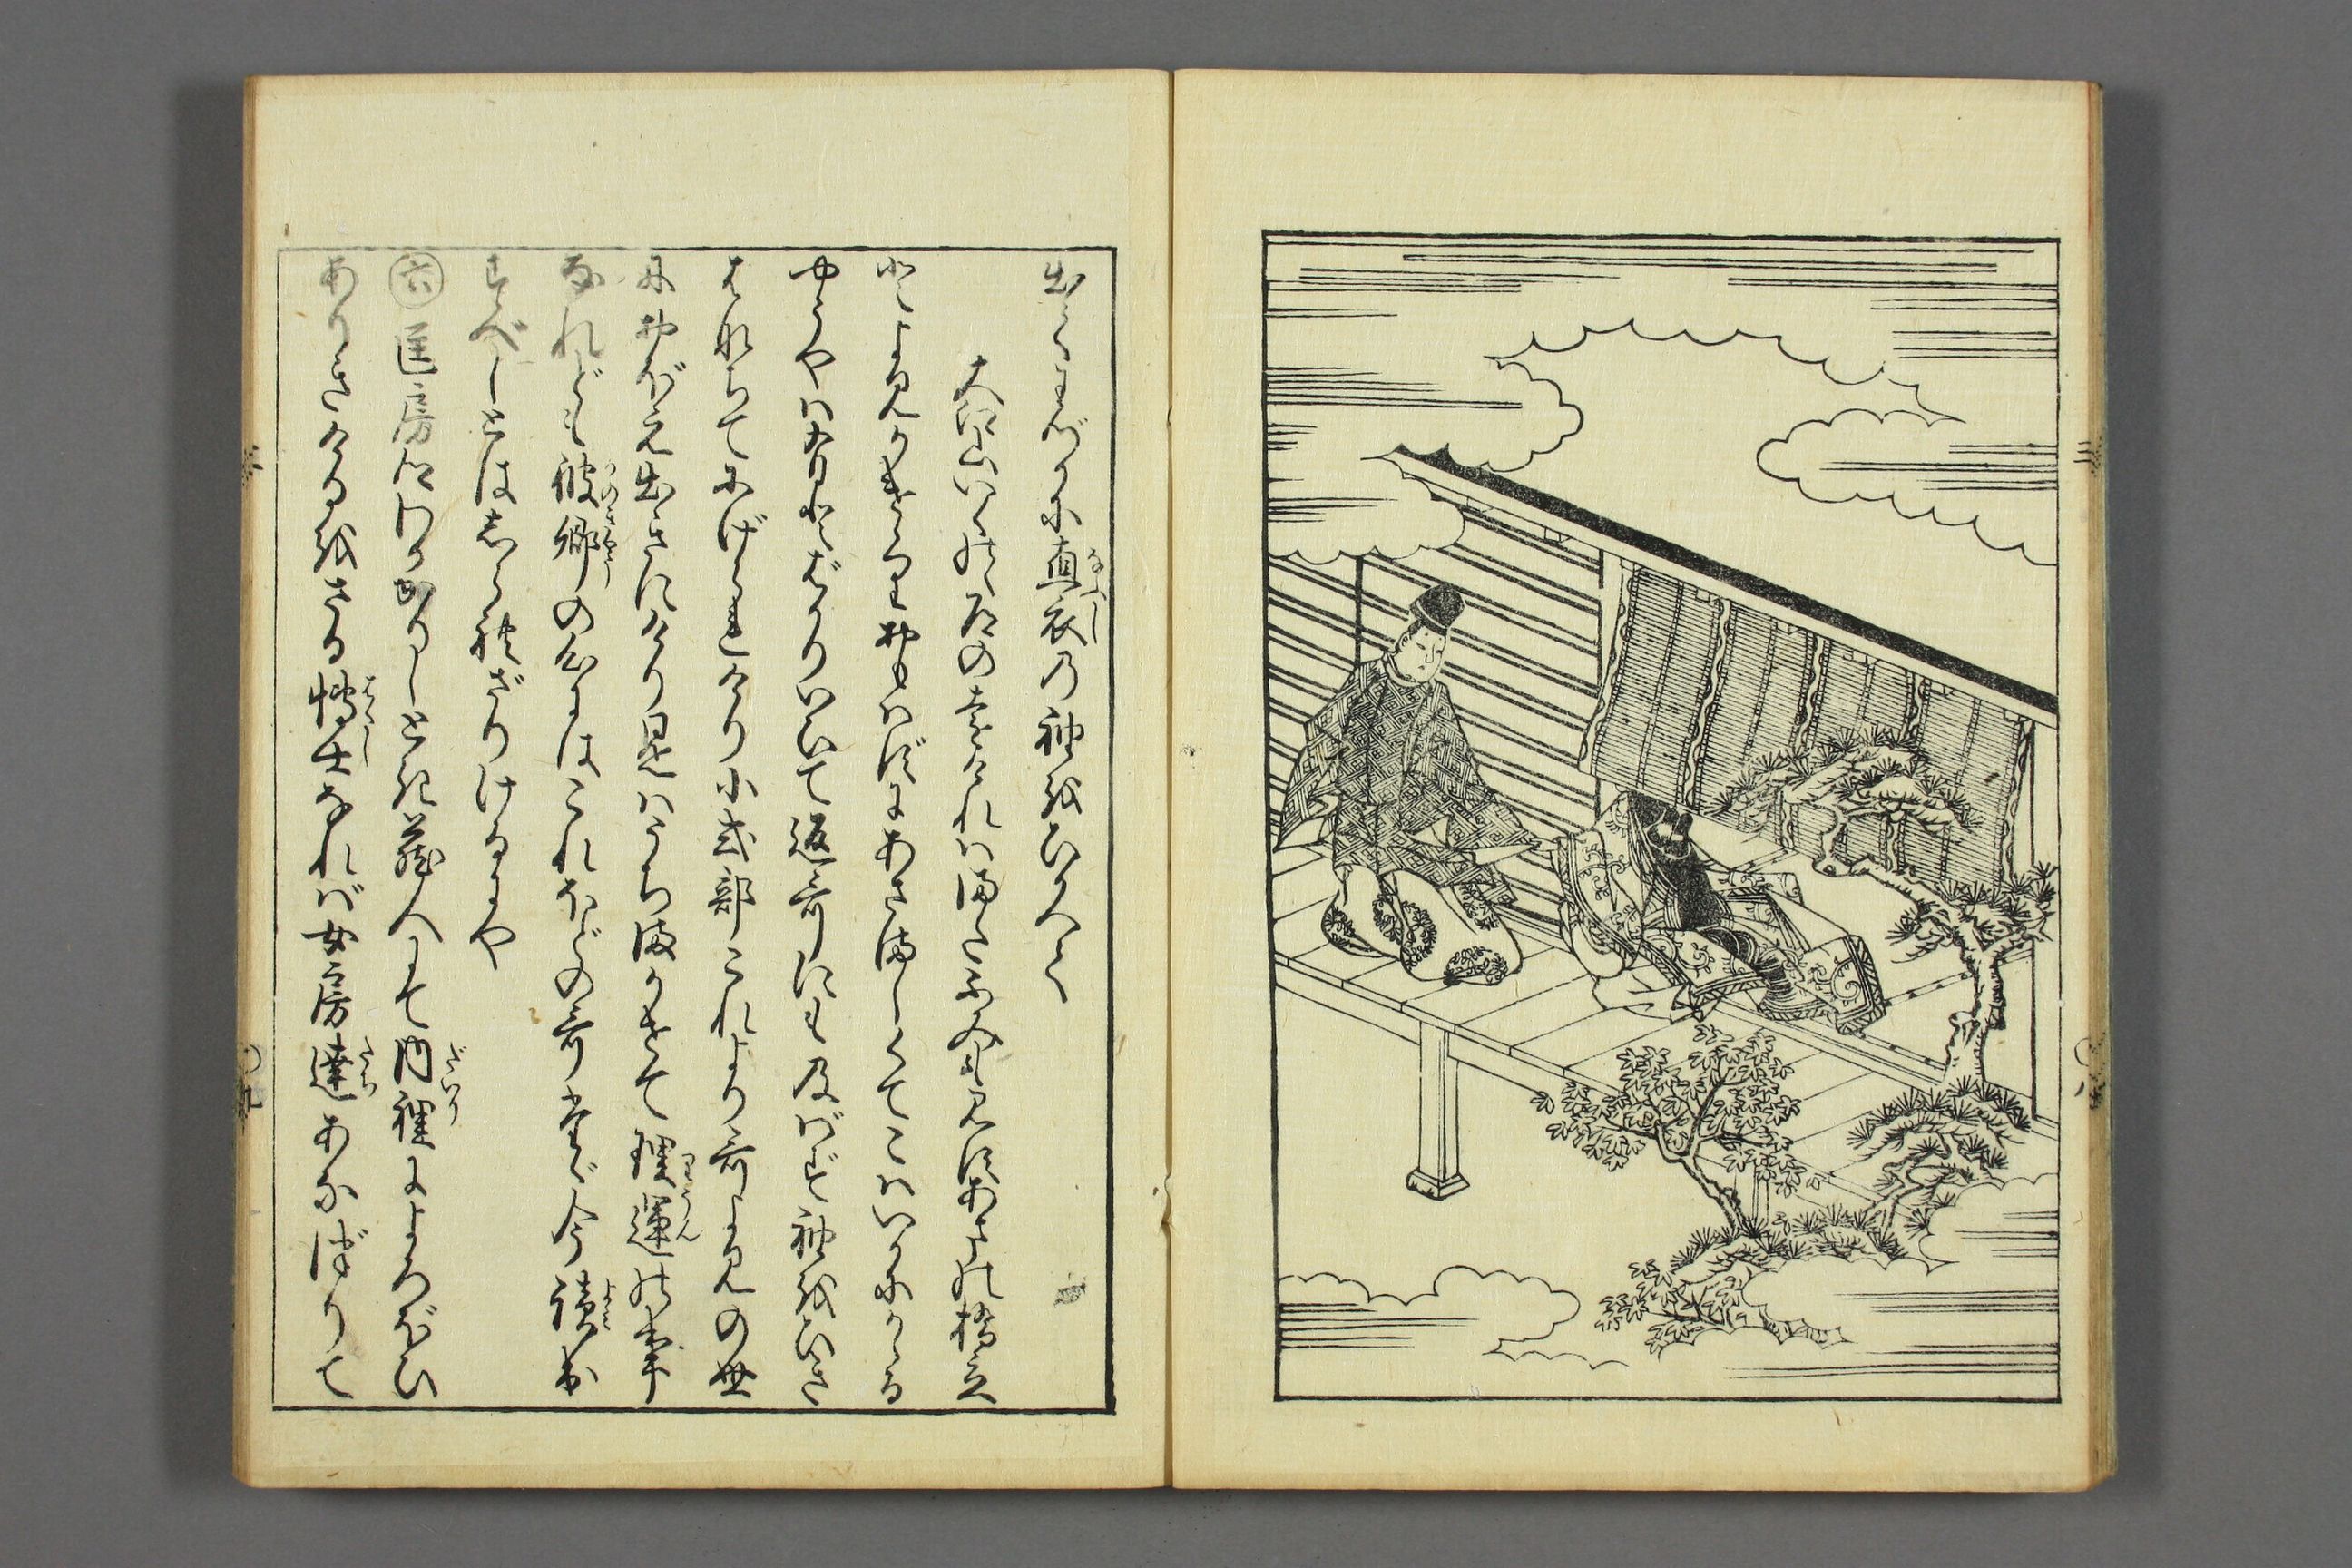 出てわづかに直衣の袖をひかへて
大江山いくのゝ道の遠ければまたふみも見ずあまの橋立
とよみかけゝりおもはずにあさましくてこはいかにかゝる
やうやはあるとばかりいひて返哥にも及ばず袖をひき
はなちてにげられけり小式部これより哥よみの世
におぼえ出きにけり是はうちまかせて理運の事
なれども彼卿の心にはこれほどの哥たゞ今読出
すべしとはしられざりけるにや
㊅匡房卿わかゝりしとき蔵人にて内裡によろぼひ
ありきけるをさる博士なれば女房達あなづりて
なふし
かのきやう
りうん
よみ
だいり
はかし
たち